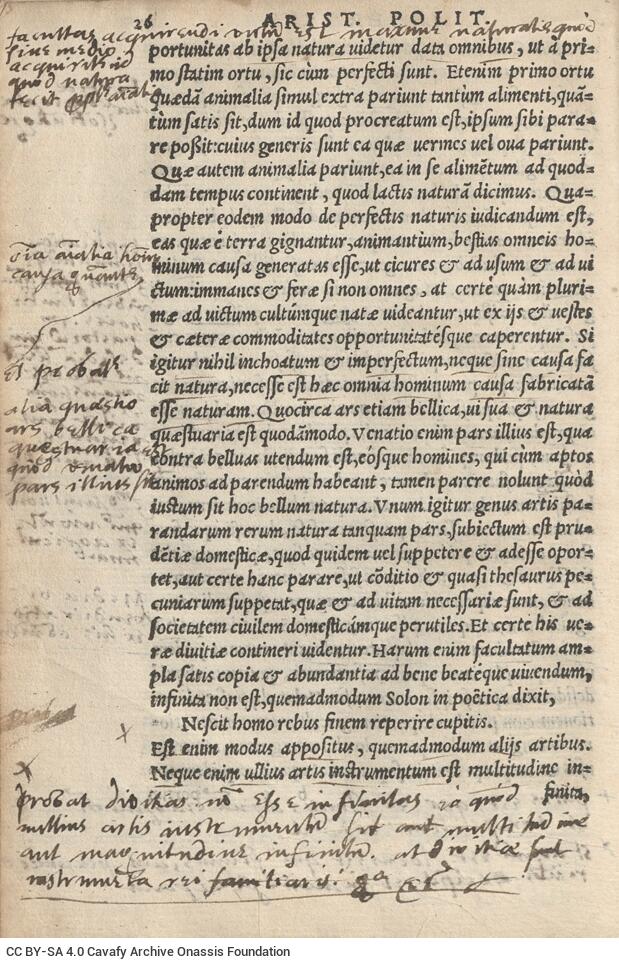 26 ARIST. POLIT.
facultas acquirendi
sine medio
acquisitio id
quod natura
portunitas ab ipsa natura uidetur data omnibus, ut à pri=
mo statim ortu, sic cùm perfecti sunt. Etenim primo ortu
quædã animalia simul extra pariunt tantùm alimenti, quã=
tùm satis sit, dum id quod procreatum est, ipsum sibi para=
re poßit: cuius generis sunt ea quæ uermes uel oua pariunt.
Quæ autem animalia pariunt, ea in se alimẽtum ad quod=
dam tempus continent, quod lactis naturã dicimus. Qua=
propter eodem modo de perfectis naturis iudicandum est,
eas quæ è terra gignantur, animantium, bestias omneis ho=
minum causa generatas esse, ut cicures & ad usum & ad ui
ctum: immanes & feræ si non omnes, at certè quàm pluri=
mæ ad uictum cultúmque natæ uideantur, ut ex ijs & uestes
& cæteræ commoditates opportunitatésque caperentur. Si
igitur nihil inchoatum & imperfectum, neque sine causa fa
cit natura, necesse est hæc omnia hominum causa fabricatã
esse naturam. Quocirca ars etiam bellica, ui sua & natura
quæstuaria est quodãmodo. Venatio enim pars illius est, qua
contra belluas utendum est, eósque homines, qui cùm aptos
animos ad parendum habeant, tamen parere nolunt quòd
iustum sit hoc bellum natura. Vnum igitur genus artis pa=
randarum rerum natura tanquam pars, subiectum est pru=
dẽtiæ domesticæ, quod quidem uel suppetere & adesse opor=
tet, aut certe hanc parare, ut cõditio & quasi thesaurus pe=
cuniarum suppetat, quæ & ad uitam necessariæ sunt, & ad
societatem ciuilem domesticámque perutiles. Et certe his ue=
ræ diuitiæ contineri uidentur. Harum enim facultatum am=
pla satis copia & abundantia ad bene beatéque uiuendum,
infinita non est, quemadmodum Solon in poëtica dixit,
Nescit homo rebus finem reperire cupitis.
Est enim modus appositus, quemadmodum alijs artibus.
Neque enim ullius artis instrumentum est multitudine in=
finita,
causa
Et probat
alia quæstio
ars bellica
quæstuaria est
quod venatio
pars illius sit
x
x
probat divitias esse infinitas quod
nullius artis instrumentum sit aut
aut magnitudine infinitum. at divitiæ
instrumenta rei familiaris
CC BY-SA 4.0 Cavafy Archive Onassis Foundation